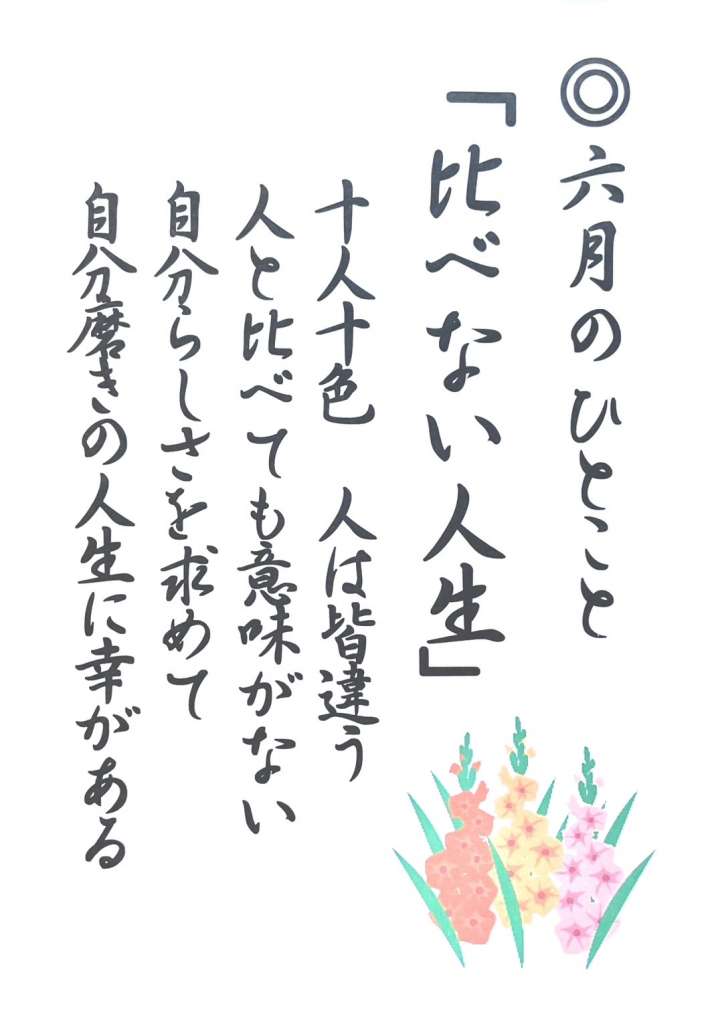 ◎六月のひとこと
「比べない人生」
十人十色　人は皆違う
人と比べても意味がない
自分らしさを求めて
自分磨きの人生に幸がある